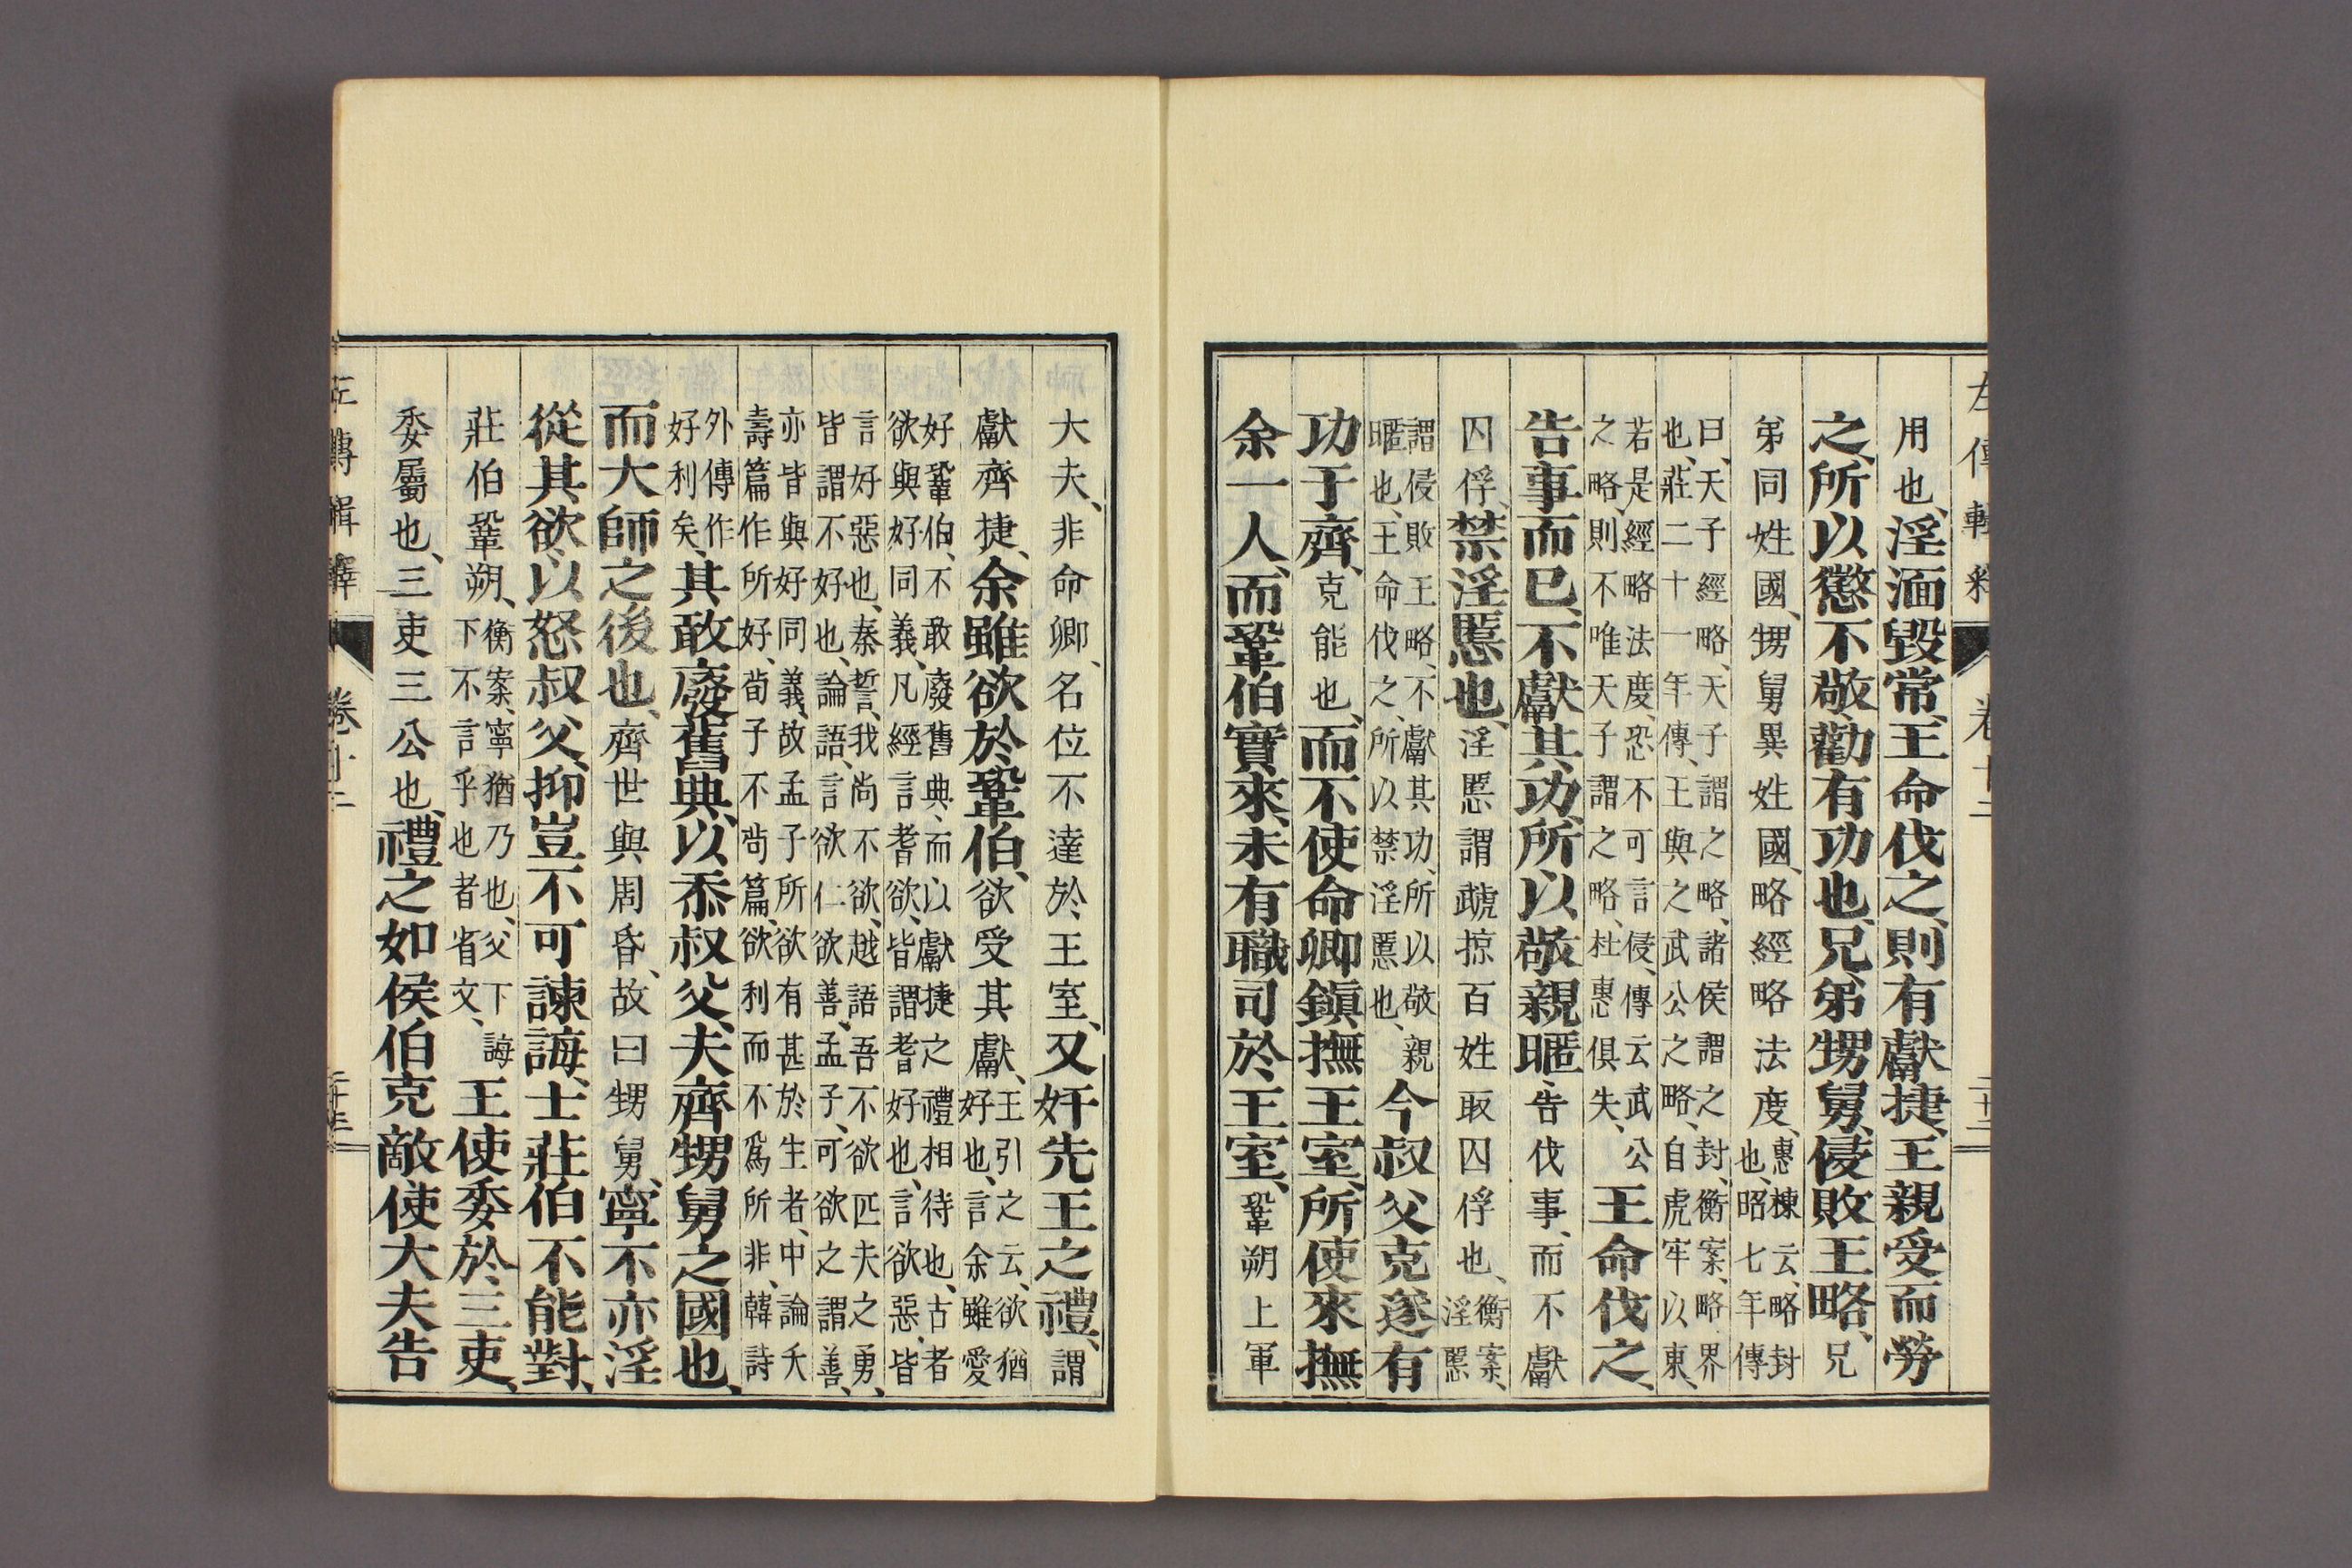 左傳輯釋 卷十二 二十二
用也、淫湎毀常、王命伐之、則有獻捷、王親受而勞
之、所以懲不敬、勸有功也、兄弟甥舅、侵敗王略、兄
弟同姓國、甥舅異姓國、略經略法度、惠棟云、略封
也、昭七年傳
曰、天子經略、天子謂之略、諸侯謂之封、衡案、略界
也、莊二十一年傳、王與之武公之略、自虎牢以東、
若是經略法度、恐不可言侵、傳云武公
之略、則不唯天子謂之略、杜惠俱失、王命伐之、
告事而已、不獻其功、所以敬親暱、告伐事、而不獻
囚俘、禁淫慝也、淫慝謂虣掠百姓取囚俘也、衡案、
淫慝
謂侵敗王略、不獻其功、所以敬親
暱也、王命伐之、所以禁淫慝也、今叔父克遂有
功于齊、克能也、而不使命卿鎭撫王室、所使來撫
余一人、而鞏伯實來、未有職司於王室、鞏朔上軍
大夫、非命卿、名位不達於王室、又奸先王之禮、謂
獻齊捷、余雖欲於鞏伯、欲受其獻、王引之云、欲猶
好也、言余雖愛
好鞏伯、不敢廢舊典、而以獻捷之禮相待也、古者
欲與好同義、凡經言耆欲、皆謂耆好也、言欲惡、皆
言好惡也、秦誓、我尚不欲、越語吾不欲匹夫之勇、
皆謂不好也、論語、言欲仁欲善、孟子、可欲之謂善、
亦皆與好同義、故孟子所欲有甚於生者、中論夭
壽篇作所好、荀子不苟篇、欲利而不爲所非、韓詩
外傳作
好利矣、其敢廢舊典、以忝叔父、夫齊甥舅之國也、
而大師之後也、齊世與周昏、故曰甥舅、寧不亦淫
從其欲、以怒叔父、抑豈不可諫誨、士莊伯不能對、
莊伯鞏朔、衡案、寧猶乃也、父下誨
下不言乎也者省文、王使委於三吏、
委屬也、三吏三公也、禮之如侯伯克敵、使大夫告
左傳輯釋 卷十二 二十三